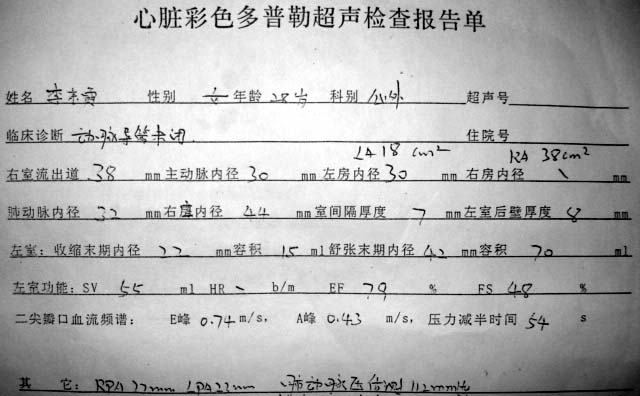 心脏彩色多普勒超声检查报告单
姓名 性别 女 年龄 28岁 科别 心外 超声号
临床诊断 动脉导管未闭 住院号
LA 18 cm² RA 38cm²
右室流出道 38 mm 主动脉内径 30 mm 左房内径 30 mm 右房内径 \ mm
肺动脉内径 32 mm 右室内径 44 mm 室间隔厚度 7 mm 左室后壁厚度 8 mm
左室: 收缩末期内径 22 mm 容积 15 ml 舒张末期内径 42 mm 容积 70 ml
左室功能: SV 55 ml HR \ b/m EF 79 % FS 48 %
二尖瓣口血流频谱: E峰 0.74 m/s, A峰 0.43 m/s, 压力减半时间 54 s
其 它: RPA 22mm LPA 22mm 肺动脉压估测 112mmHg